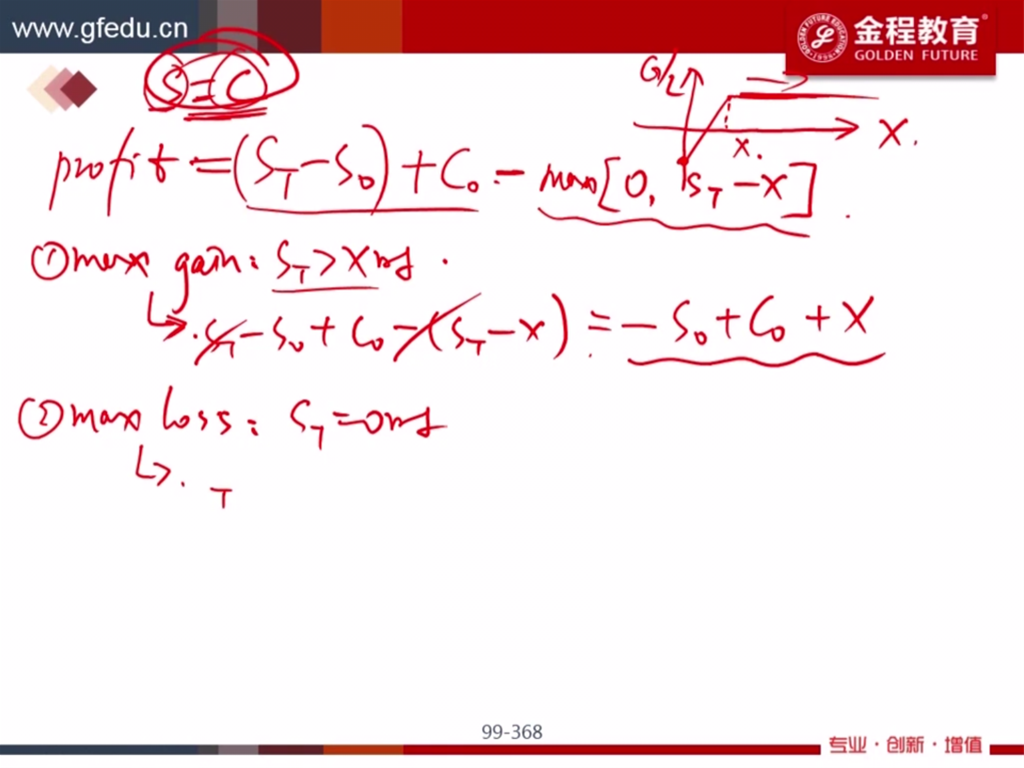 www.gfedu.cn
金程教育
GOLDEN FUTURE
S - C
G/L
X.
X.
profit = (S_T - S_0) + C_0 - max[0, S_T - X]
① max gain: S_T > X 时.
↳ S_T - S_0 + C_0 - (S_T - X) = - S_0 + C_0 + X
② max loss: S_T = 0 时
↳
99-368
专业·创新·增值